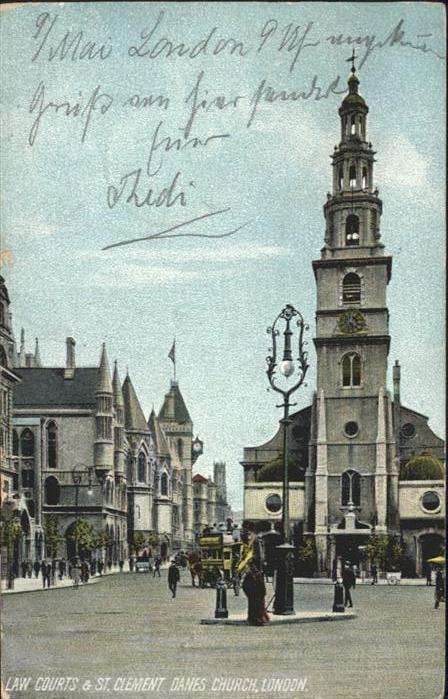 9/Mai London 9 Uhr angek
Gruß von hier sendet
Euer
Thedi
LAW COURTS & ST. CLEMENT DANES CHURCH, LONDON.